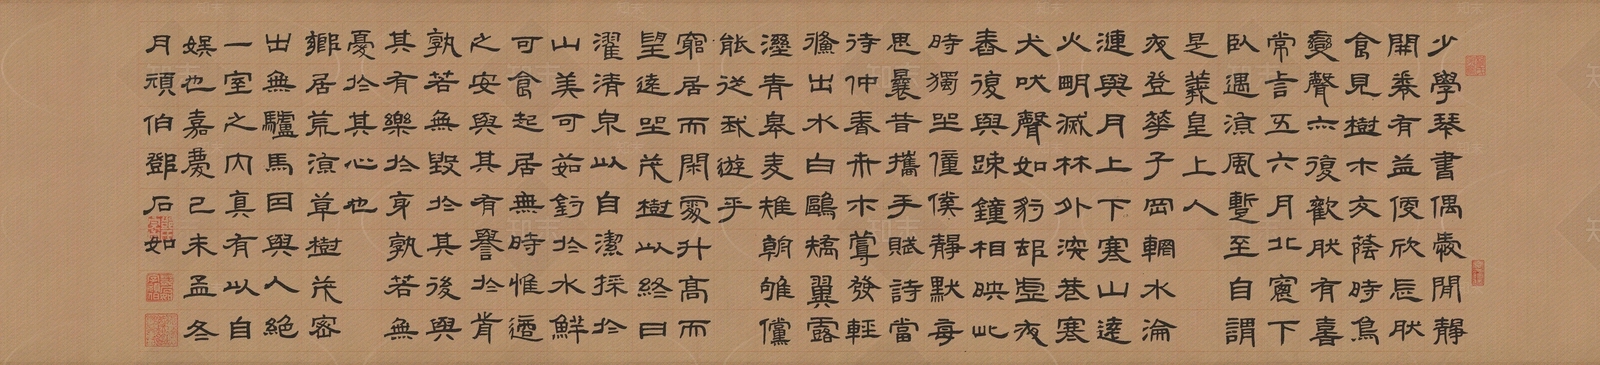 少學琴書偶愛閒靜
開卷有益便欣然忘
食見樹木交蔭時鳥
變聲亦復歡然有喜
常言五六月北窗下
臥遇涼風暫至自謂
是羲皇上人
夜登華子岡輞水淪
漣與月上下寒山遠
火明滅林外深巷寒
犬吠聲如豹邨虛夜
舂復與疎鐘相映此
時獨坐僮僕靜默每
思曩昔攜手賦詩當
待仲春卉木蔓發輕
鯈出水白鷗矯翼露
溼青皋麥雉朝雊儻
能從我遊乎
窮居而閑處升高而
望遠坐茂樹以終日
濯清泉以自潔採於
山美可茹釣於水鮮
可食起居無時惟適
之安與其有譽於前
孰若無毀於其後與
其有樂於身孰若無
憂於其心也
鄉居荒涼草樹茂密
出無驢馬因與人絕
一室之內真有以自
娛也嘉慶己未孟冬
月頑伯鄧石如